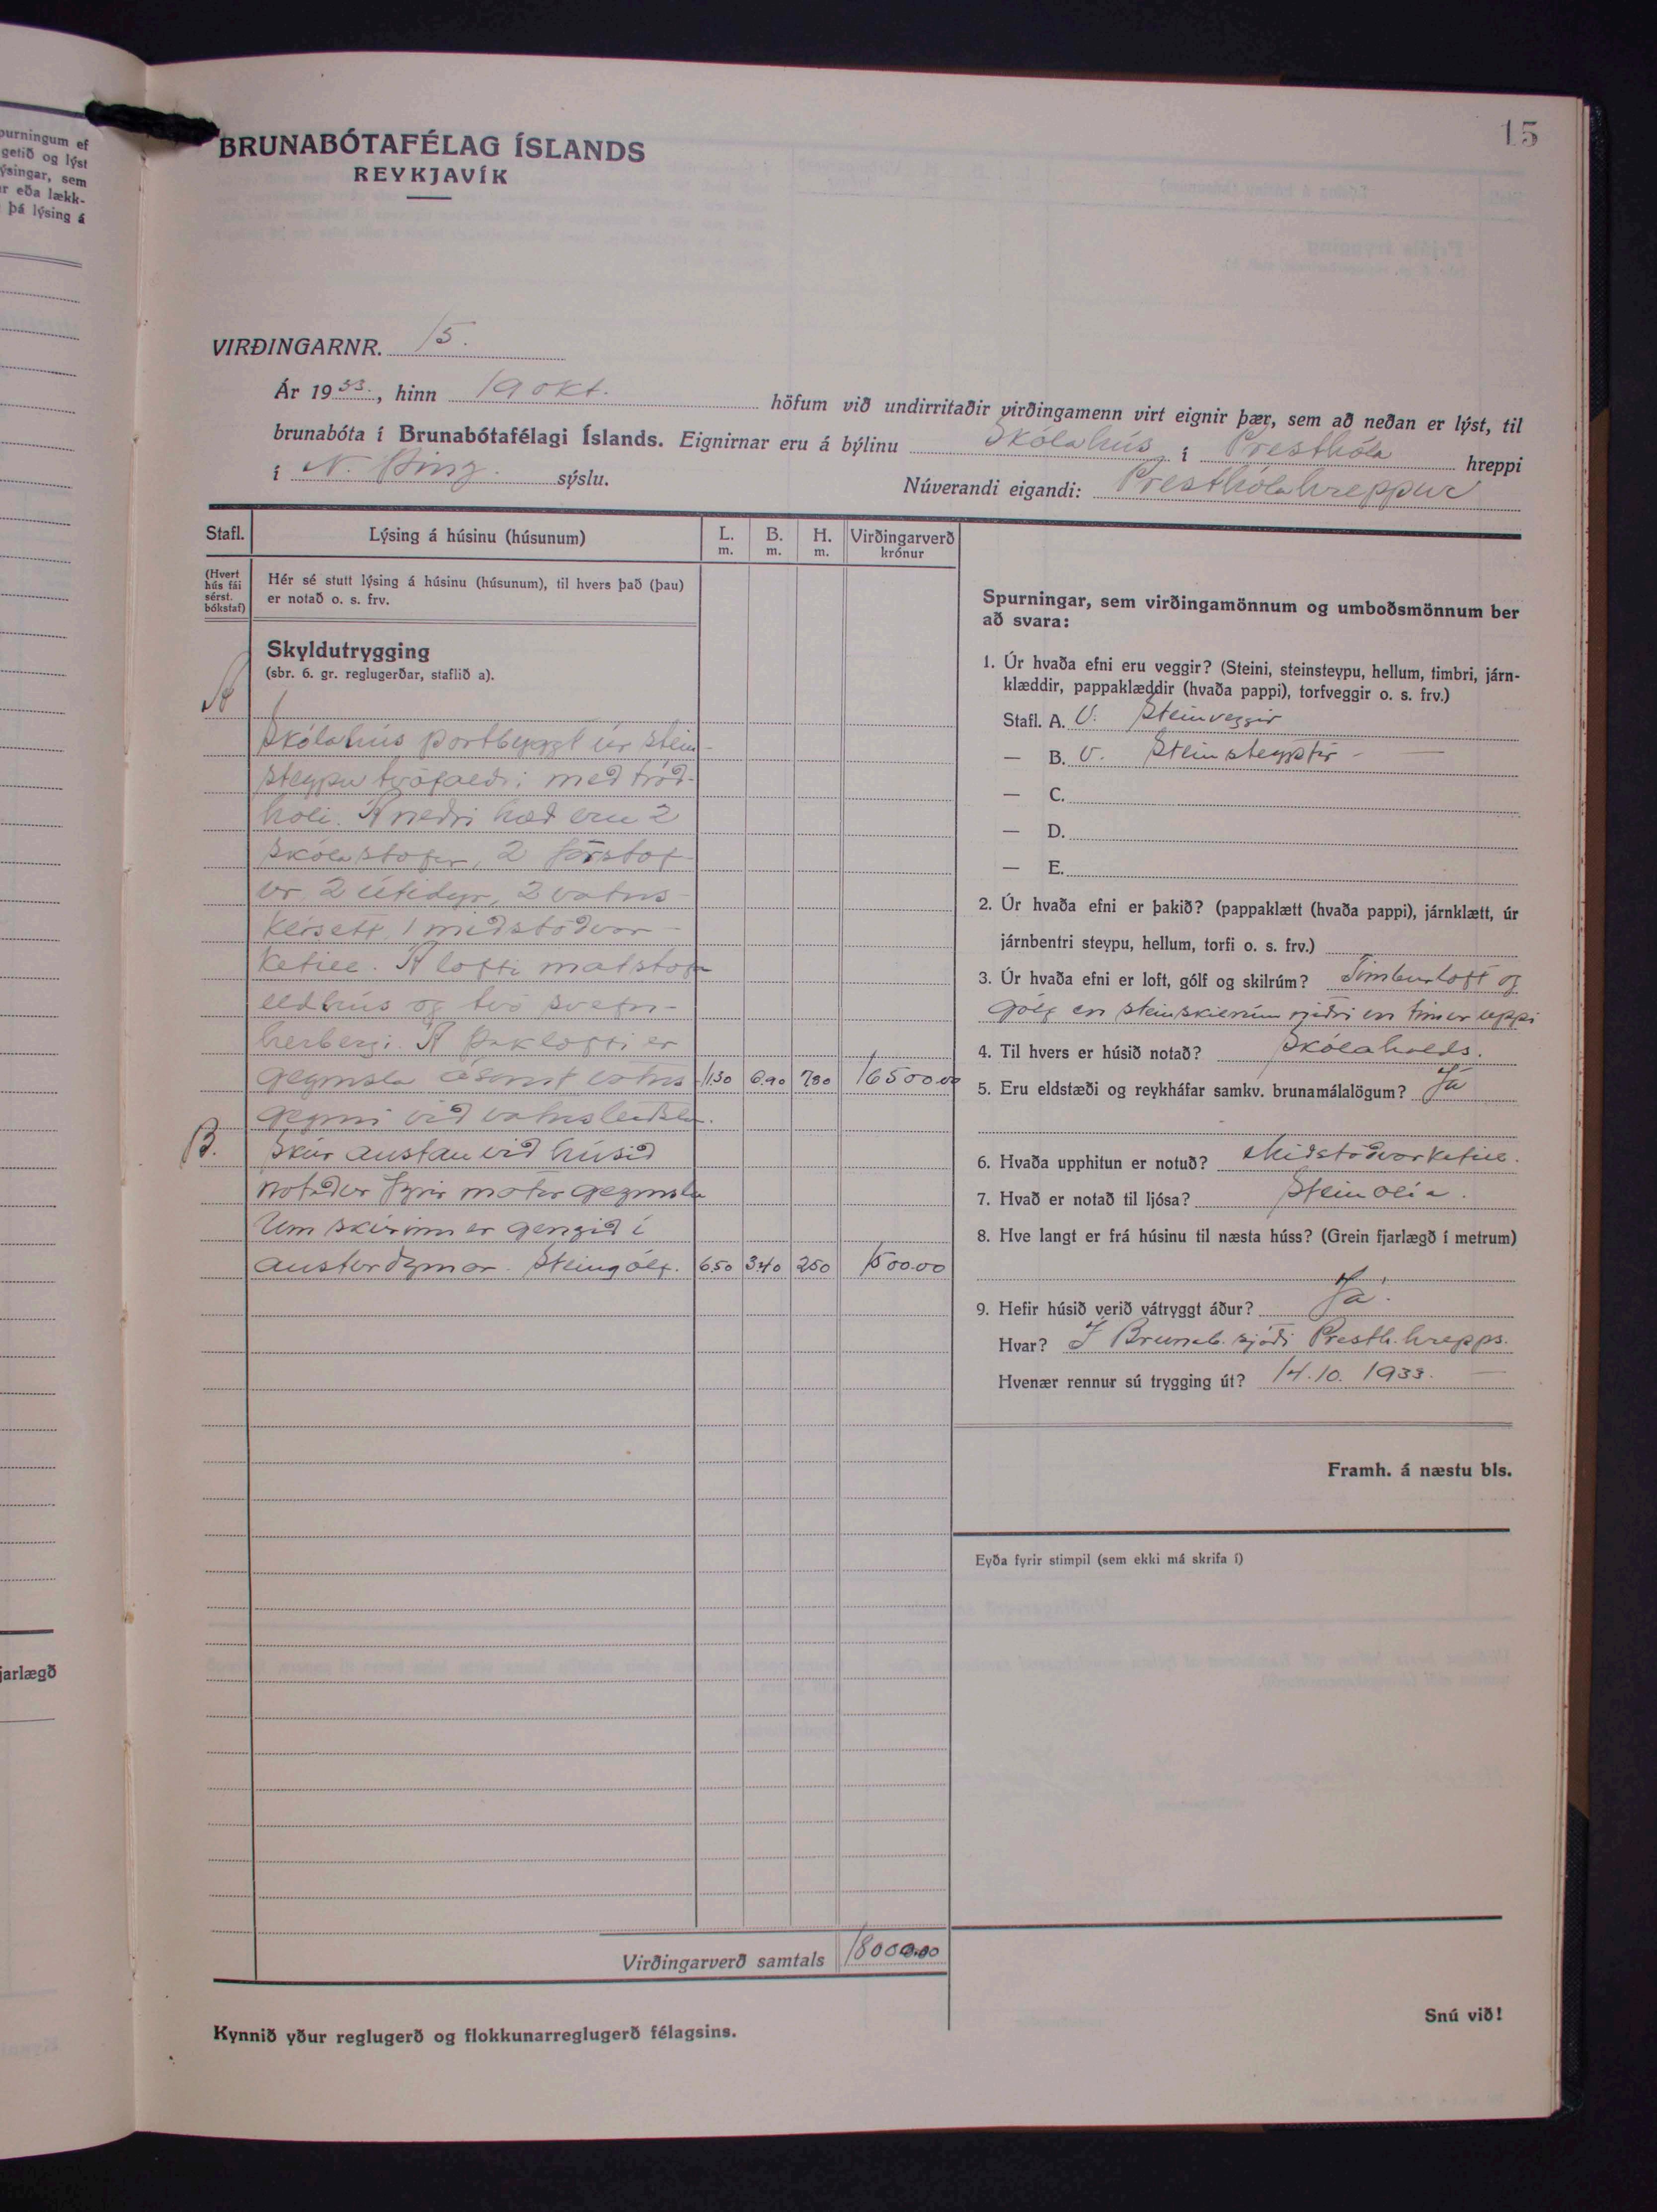 15
BRUNABÓTAFÉLAG ÍSLANDS
REYKJAVÍK
VIRÐINGARNR. 15.
Ár 1933., hinn 19 okt. höfum við undirritaðir virðingamenn virt eignir þær, sem að neðan er lýst, til
brunabóta í Brunabótafélagi Íslands. Eignirnar eru á býlinu Skólahús í Presthóla hreppi
í N. Þing. sýslu. Núverandi eigandi: Presthólahreppur
Stafl. Lýsing á húsinu (húsunum) L. m. B. m. H. m. Virðingarverð krónur
(Hvert hús fái sérst. bókstaf)
Hér sé stutt lýsing á húsinu (húsunum), til hvers það (þau)
er notað o. s. frv.
Skyldutrygging
(sbr. 6. gr. reglugerðar, staflið a).
A
Skólahús portbyggt úr stein-
steypu tvöfaldri með tróð-
holi. Á neðri hæð eru 2
skólastofur, 2 forstof-
ur 2 útidyr, 2 vatns-
klósett, 1 miðstöðvar-
ketill. Á lofti matstofa
eldhús og tvö svefn-
herbergi. Á þaklofti er
geymsla ásamt vatns 11.30 6.90 7.80 16500.00
geymi við vatnsleiðslu.
B. Skúr austan við húsið
notaður fyrir matargeymslu
Um skúrinn er gengið í
austurdyrnar. Steingólf. 6.50 3.40 2.50 1500.00
Virðingarverð samtals 18000.00
Kynnið yður reglugerð og flokkunarreglugerð félagsins.
Spurningar, sem virðingamönnum og umboðsmönnum ber
að svara:
1. Úr hvaða efni eru veggir? (Steini, steinsteypu, hellum, timbri, járn-
klæddir, pappaklæddir (hvaða pappi), torfveggir o. s. frv.)
Stafl. A. V. Steinveggir
— B. V. Steinsteyptir -
— C.
— D.
— E.
2. Úr hvaða efni er þakið? (pappaklætt (hvaða pappi), járnklætt, úr
járnbentri steypu, hellum, torfi o. s. frv.)
3. Úr hvaða efni er loft, gólf og skilrúm? Timburloft og
gólf en steinskilrúm niðri en timbur uppi
4. Til hvers er húsið notað? Skólahalds.
5. Eru eldstæði og reykháfar samkv. brunamálalögum? Já
6. Hvaða upphitun er notuð? Miðstöðvarketill.
7. Hvað er notað til ljósa? Steinolía.
8. Hve langt er frá húsinu til næsta húss? (Grein fjarlægð í metrum)
9. Hefir húsið verið vátryggt áður? Já.
Hvar? Í Brunab.sjóði Presth.hrepps.
Hvenær rennur sú trygging út? 14.10. 1933. —
Framh. á næstu bls.
Eyða fyrir stimpil (sem ekki má skrifa í)
Snú við!
purningum ef
getið og lýst
ýsingar, sem
r eða lækk-
þá lýsing á
jarlægð